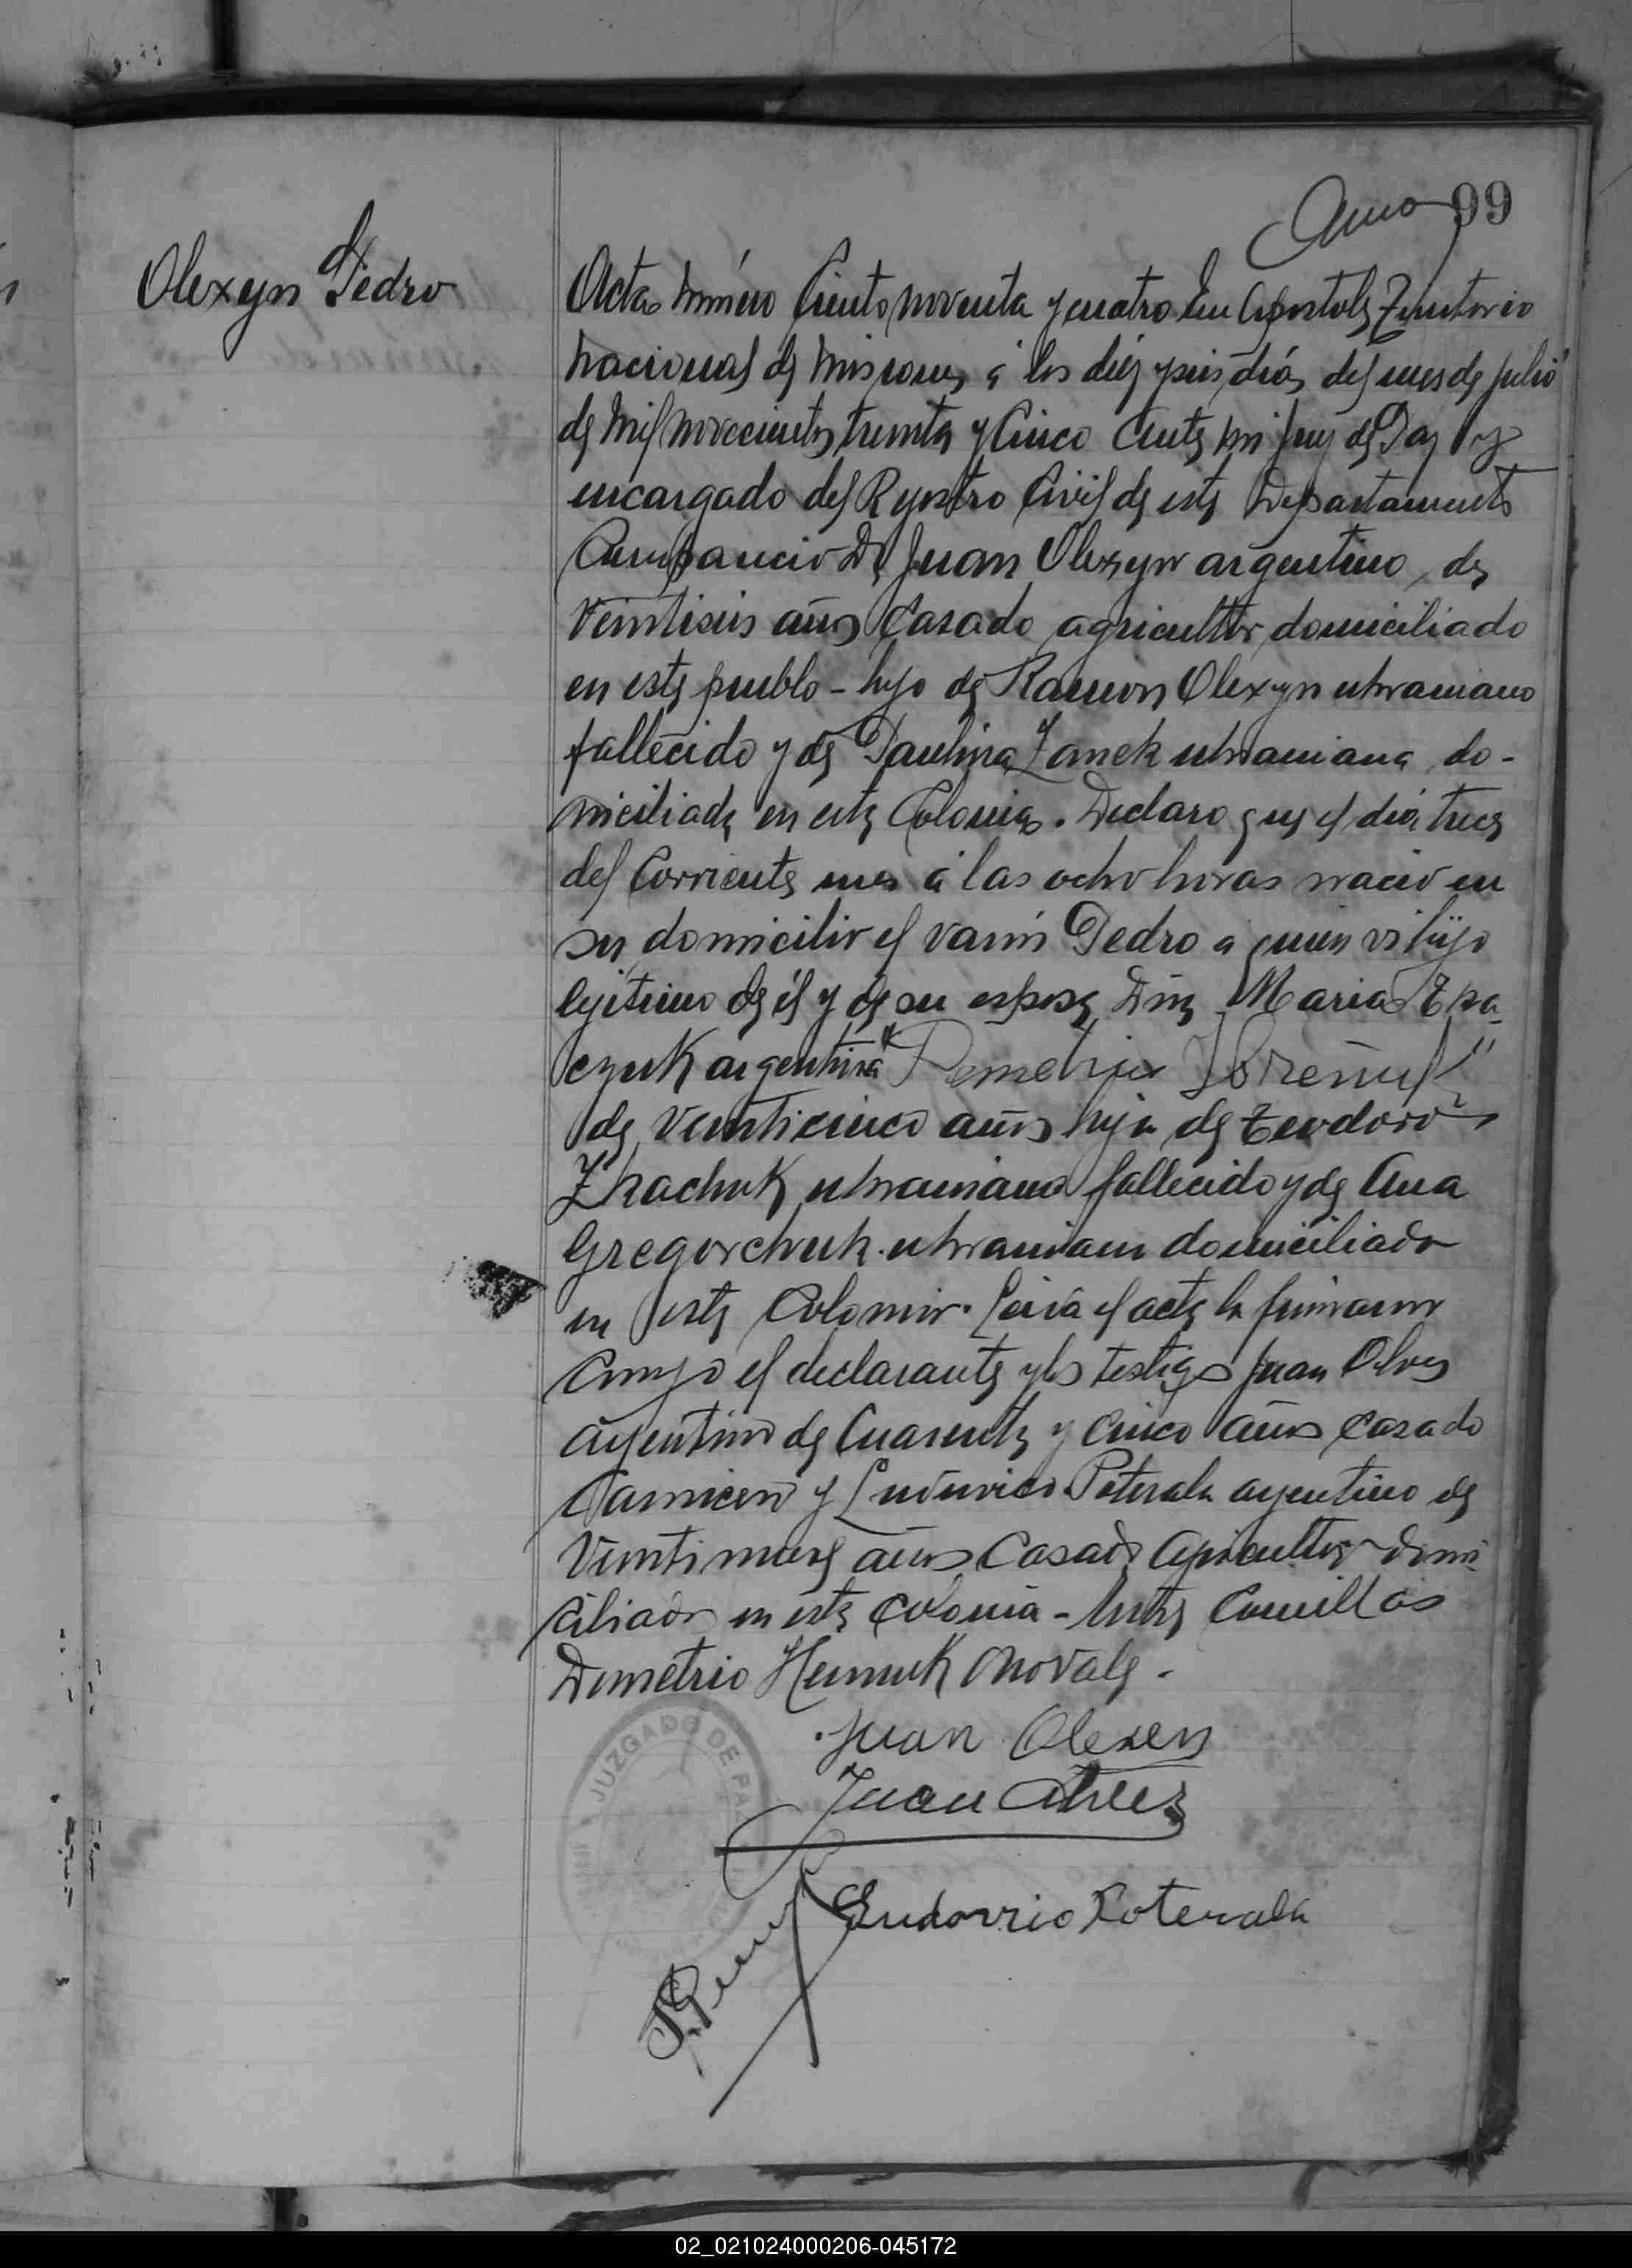 99
Olexyn Pedro
Acta número Ciento noventa y cuatro En Apostoles Territorio
nacional de Misiones á los diez y seis días del mes de Julio
de mil novecientos treinta y Cinco Ante mi Juez de Paz y
encargado del Registro Civil de este Departamento
Compareció Dn Juan Olexyn argentino, de
Veintiseis años Casado agricultor, domiciliado
en este pueblo - hijo de Ramon Olexyn ukraniano
fallecido y de Paulina Zanek ukraniana do-
miciliada en esta Colonia. Declaro que el día trece
del Corriente mes á las ocho horas nació en
su domicilio el varón Pedro a quien vi hijo
lejitimo de él y de su esposa Dña Maria
argentina
de Veinticinco años hija de Teodoro
Zkachuk ukraniano fallecido y de Ana
Gregorchuk ukraniana domiciliada
en esta Colonia. Leida el acta la firmaron
Conmigo el declarante y los testigos Juan Olves
argentino de Cuarenta y Cinco años Casado
Carnicero y Ludovico Poterala argentino de
Veintinueve años Casado Agricultor domi-
ciliados en esta Colonia - Entre Comillas
Demetrio no vale -
Juan Olexen
Juan Alvez
Ludovrico Poterala
JUZGADO DE PAZ
02_021024000206-045172